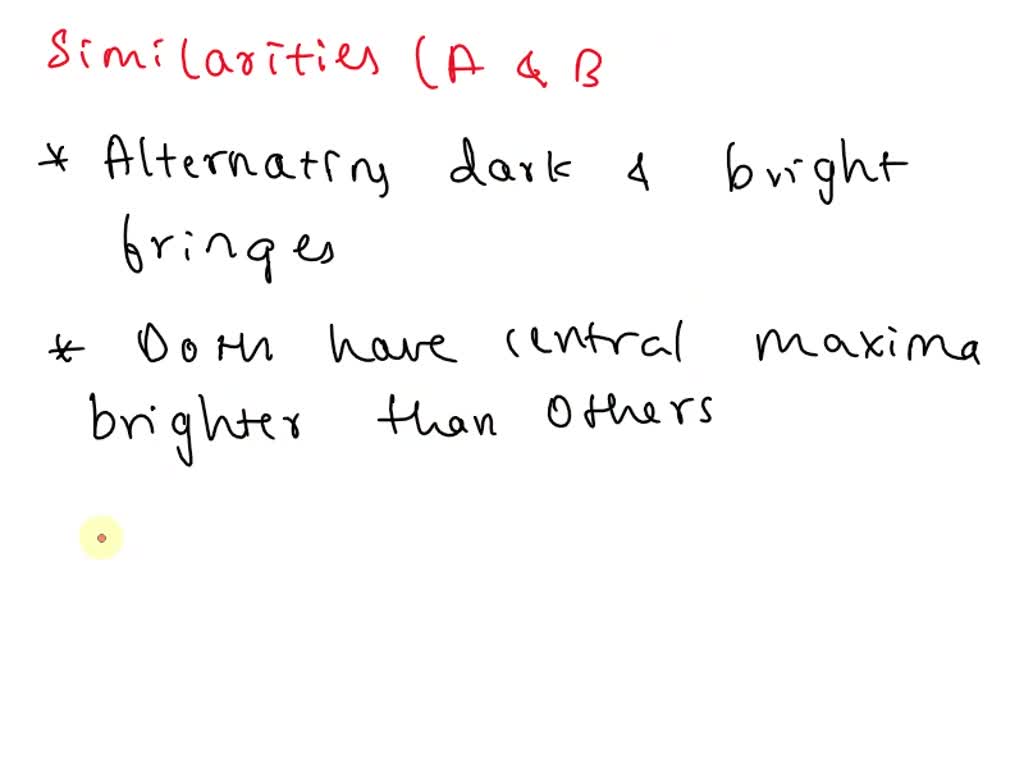 Similarities (A & B
* Alternating dark & bright
fringes
* Both have central maxima
brighter than others